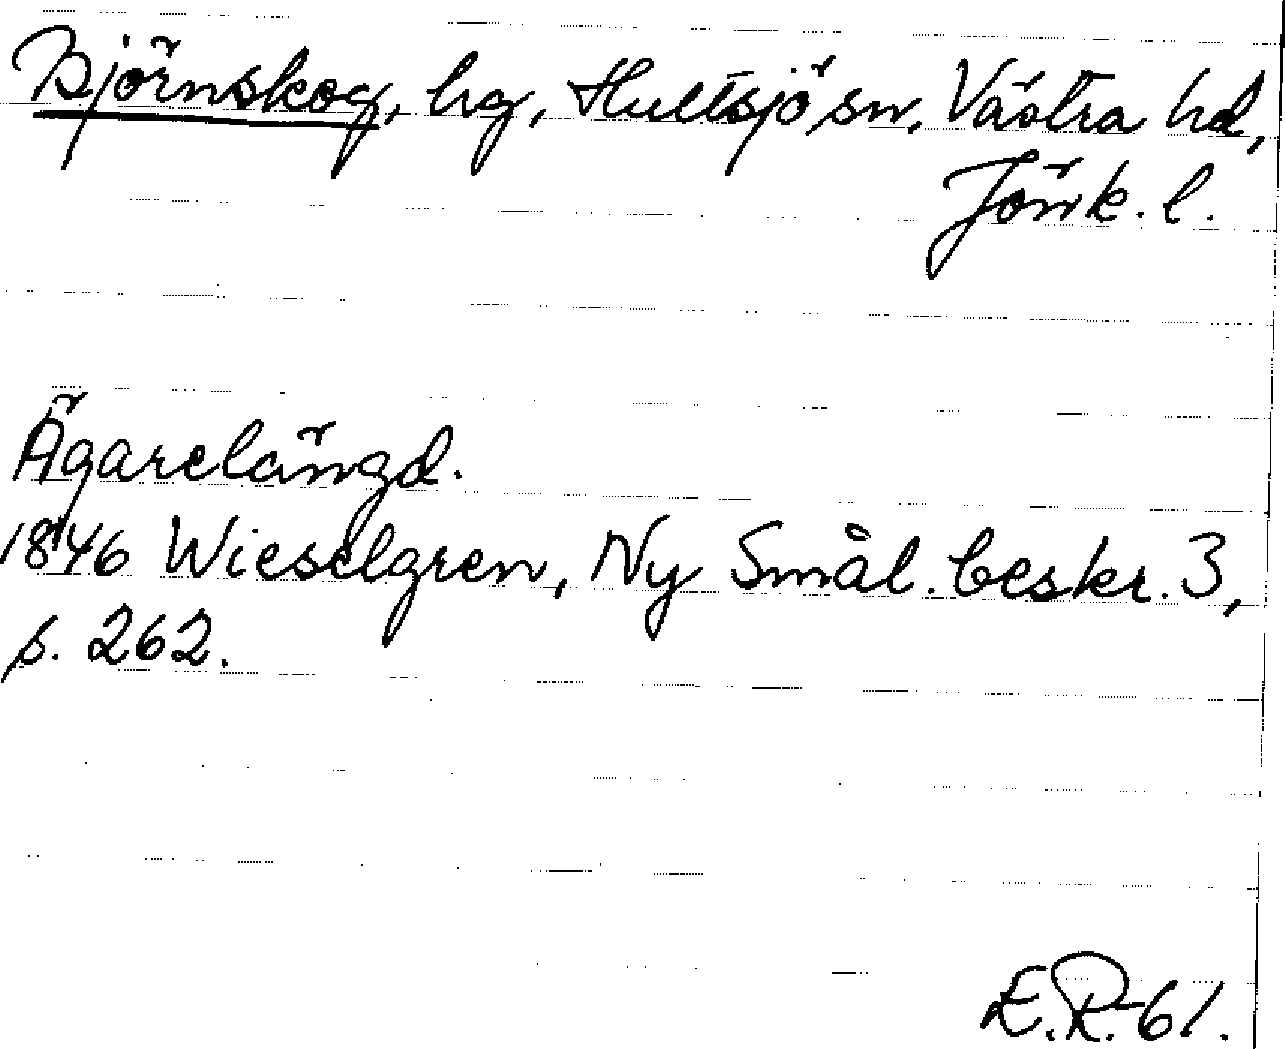 Björnskog, hg, Hultsjö sn, Västra hd,
Jönk. l.
Ägarelängd.
1846 Wieselgren, Ny Smål. beskr. 3,
s. 262.
E.R. 61.